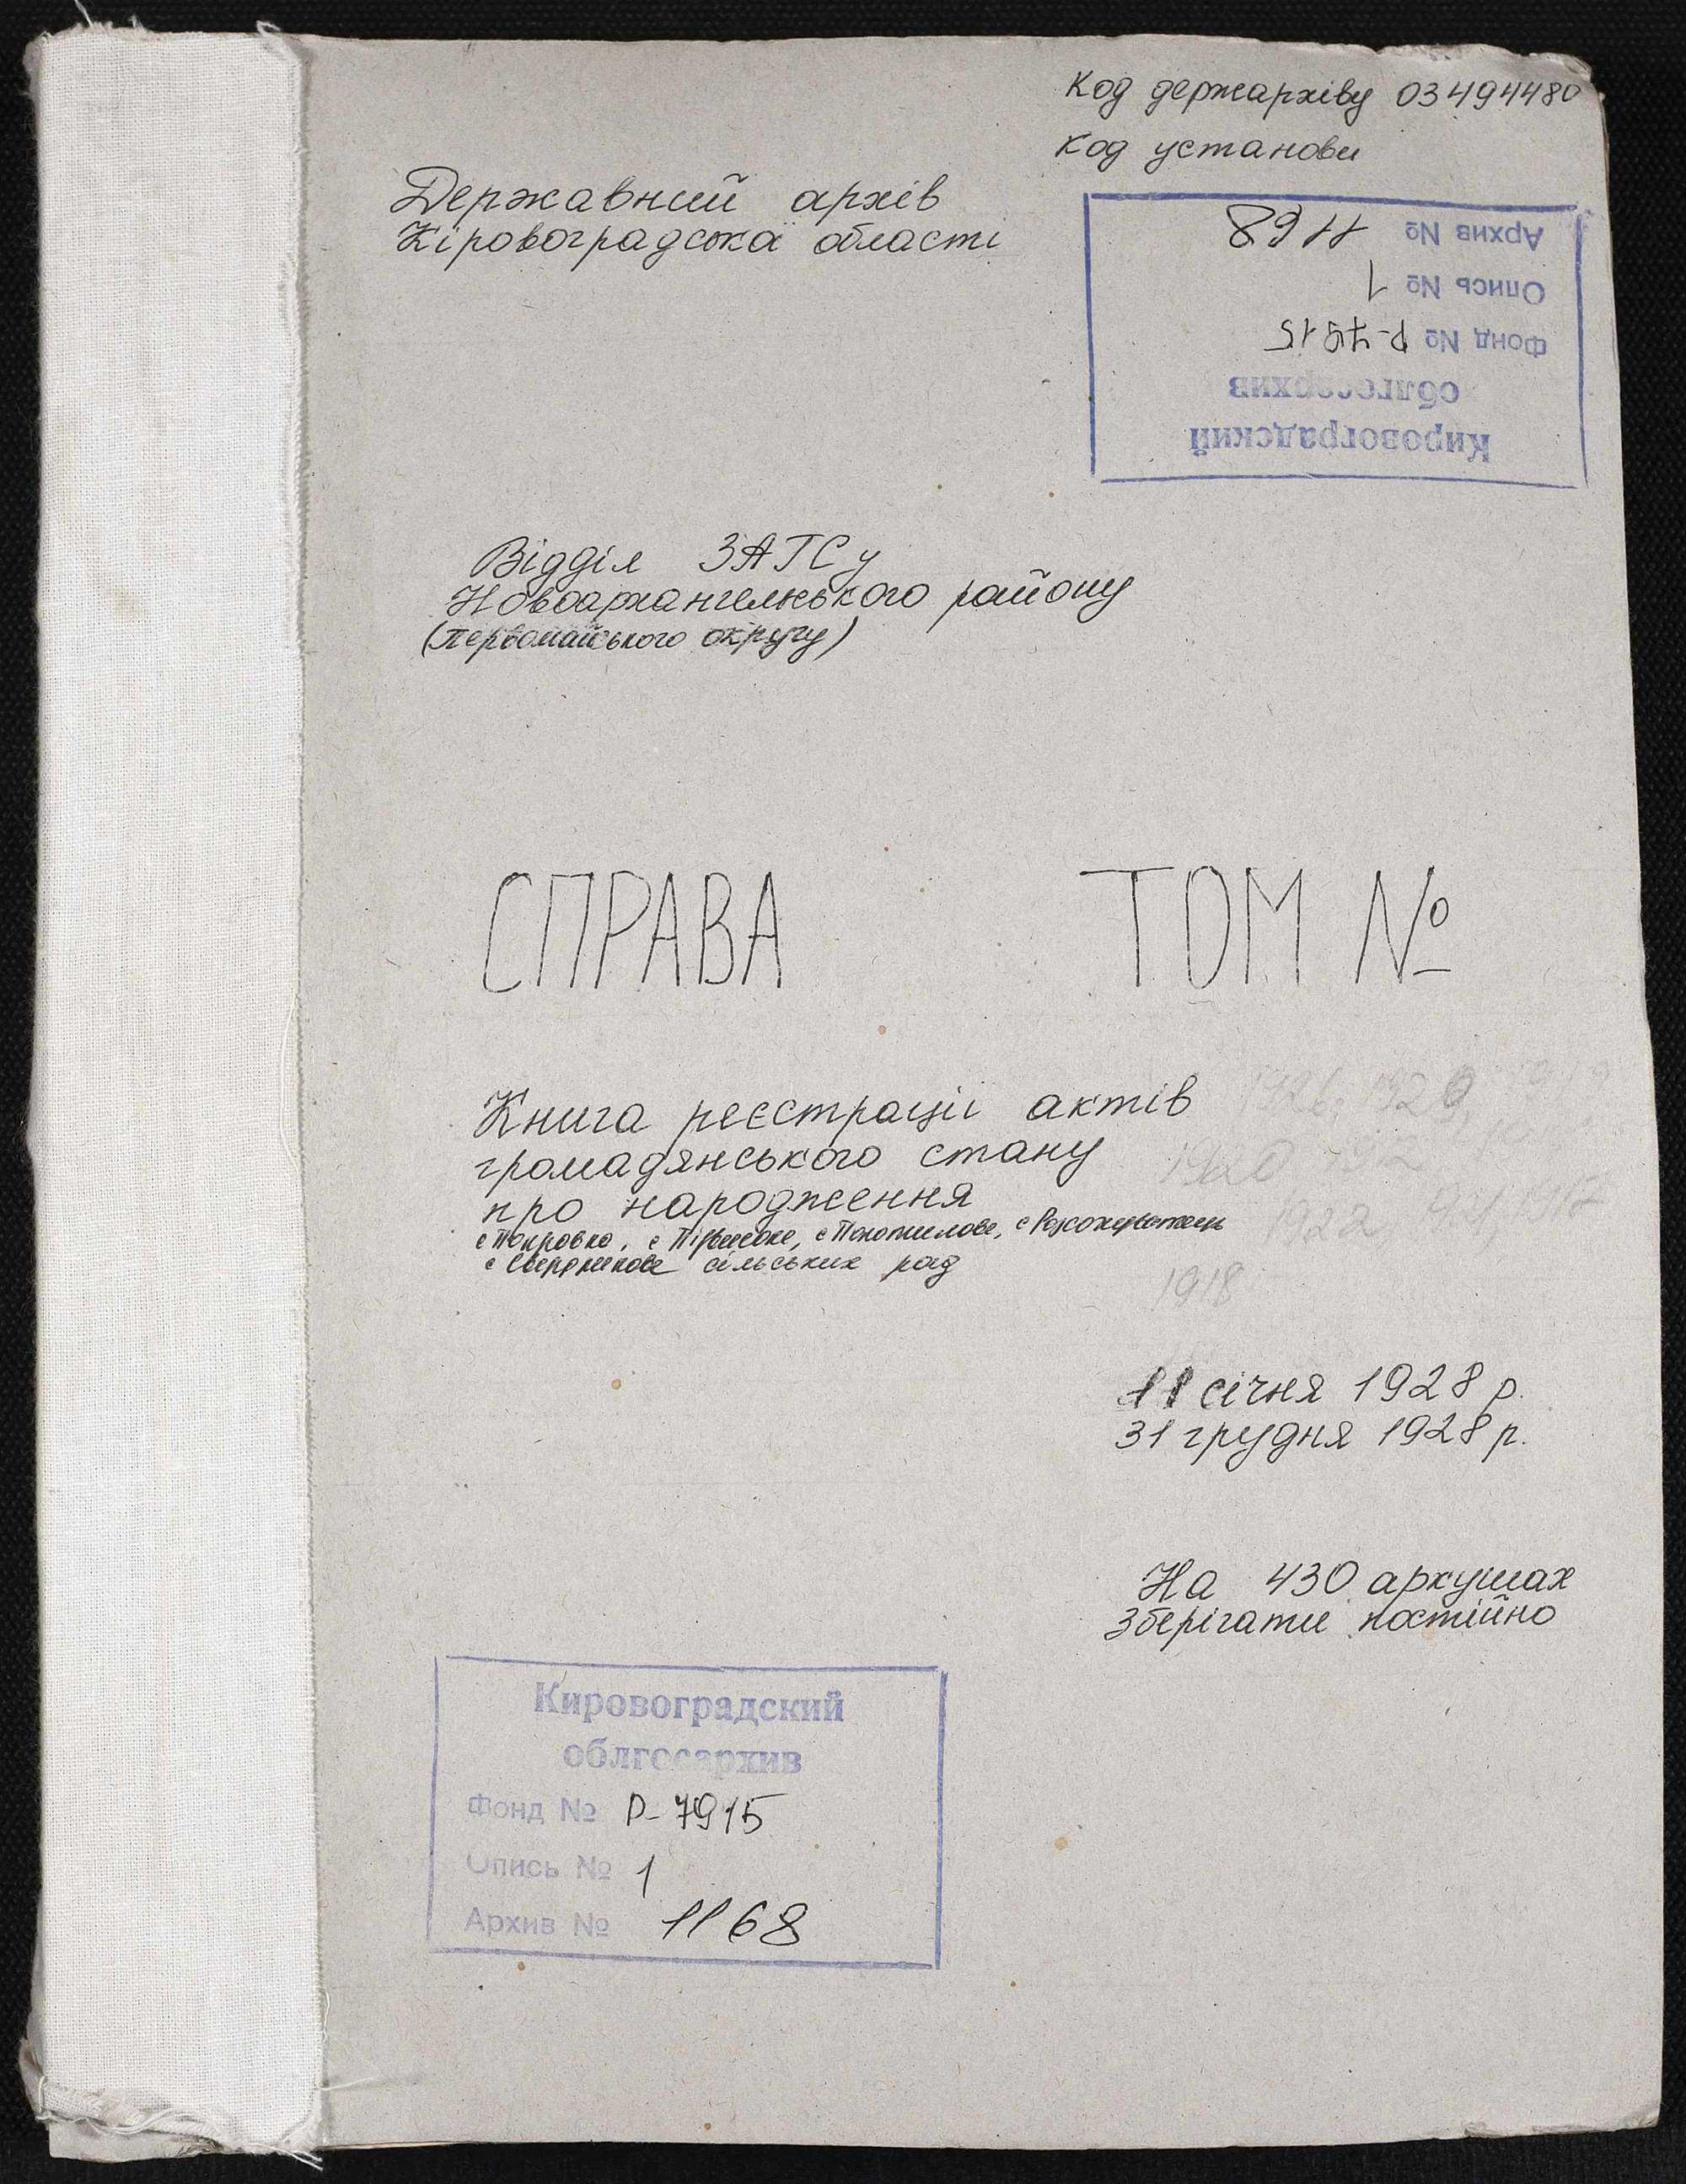 Код держархіву 03494480
Код установи
Державний архів
Кіровоградської області
Архив № 1168
Опись № 1
Фонд № Р-7915
облгосархив
Кировоградский
Відділ ЗАГСу
Новоархангельського району
(Первомайського округу)
СПРАВА ТОМ №
Книга реєстрації актів
громадянського стану
про народження
с Покровка, с Підвисоке, с Копотилове,
с Свердликове сільських рад
1918
11 січня 1928 р.
31 грудня 1928 р.
На 430 аркушах
Зберігати постійно
Кировоградский
облгосархив
Фонд № Р-7915
Опись № 1
Архив № 1168